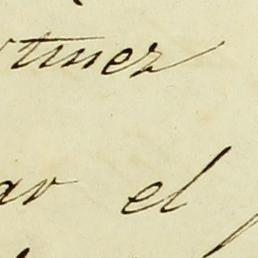 rtinez
ar el